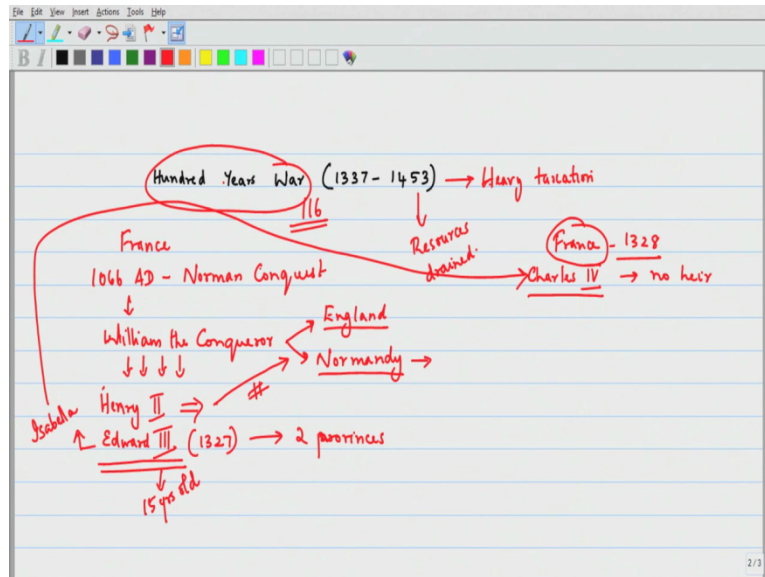 File Edit View Insert Actions Tools Help
B I
Hundred Years War (1337 - 1453) → Heavy taxation
116
Resources drained.
France - 1328
Charles IV → no heir
France
1066 AD - Norman Conquest
↓
William the Conqueror
England
Normandy →
↓ ↓ ↓ ↓
Henry II ⇒
#
Isabella
Edward III (1327) → 2 provinces
15 yrs old
2/3